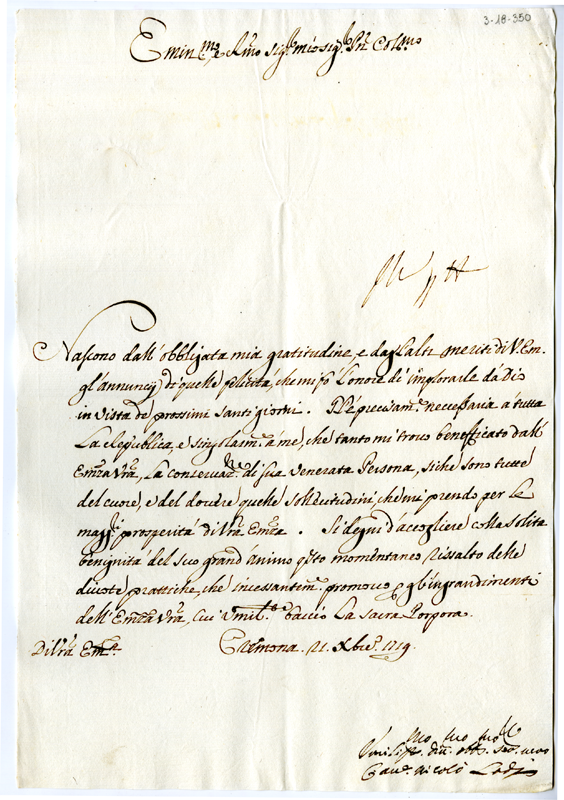 3-18-350
Emin.mo e sig.r mio sig.r P̃rñ Col.mo
Nascono dall' obbligata mia gratitudine, e dagl'alti meriti di V. Em.
gl'annuncij di quelle felicità, che mi fò l'onore di implorarle da Dio
in vista de prossimi santi giorni. necessaria a tutta
La Republica, e singolarm.te à me, che tanto mi trovo beneficato dall'
Em.za V.ra, La conservaz.ne di sua venerata Persona, siche sono tutte
del cuore, e del dovere quelle sollecitudini, che mi prendo per Le
magg.ri prosperità di V.ra Em.za. Si degni d'accogliere colla solita
benignità del suo grand'animo q.sto momentaneo risalto delle
divote prattiche, che incessantem.te promovo p gl'ingrandimenti
dell'Em.za V.ra, cui Vmil.te baccio La sacra Porpora.
Di V.ra Em.za Cremona 21. Xbre. 1719.
Vmiliss.o div.o obb. ser.
Cav.e Nicolò Lodi